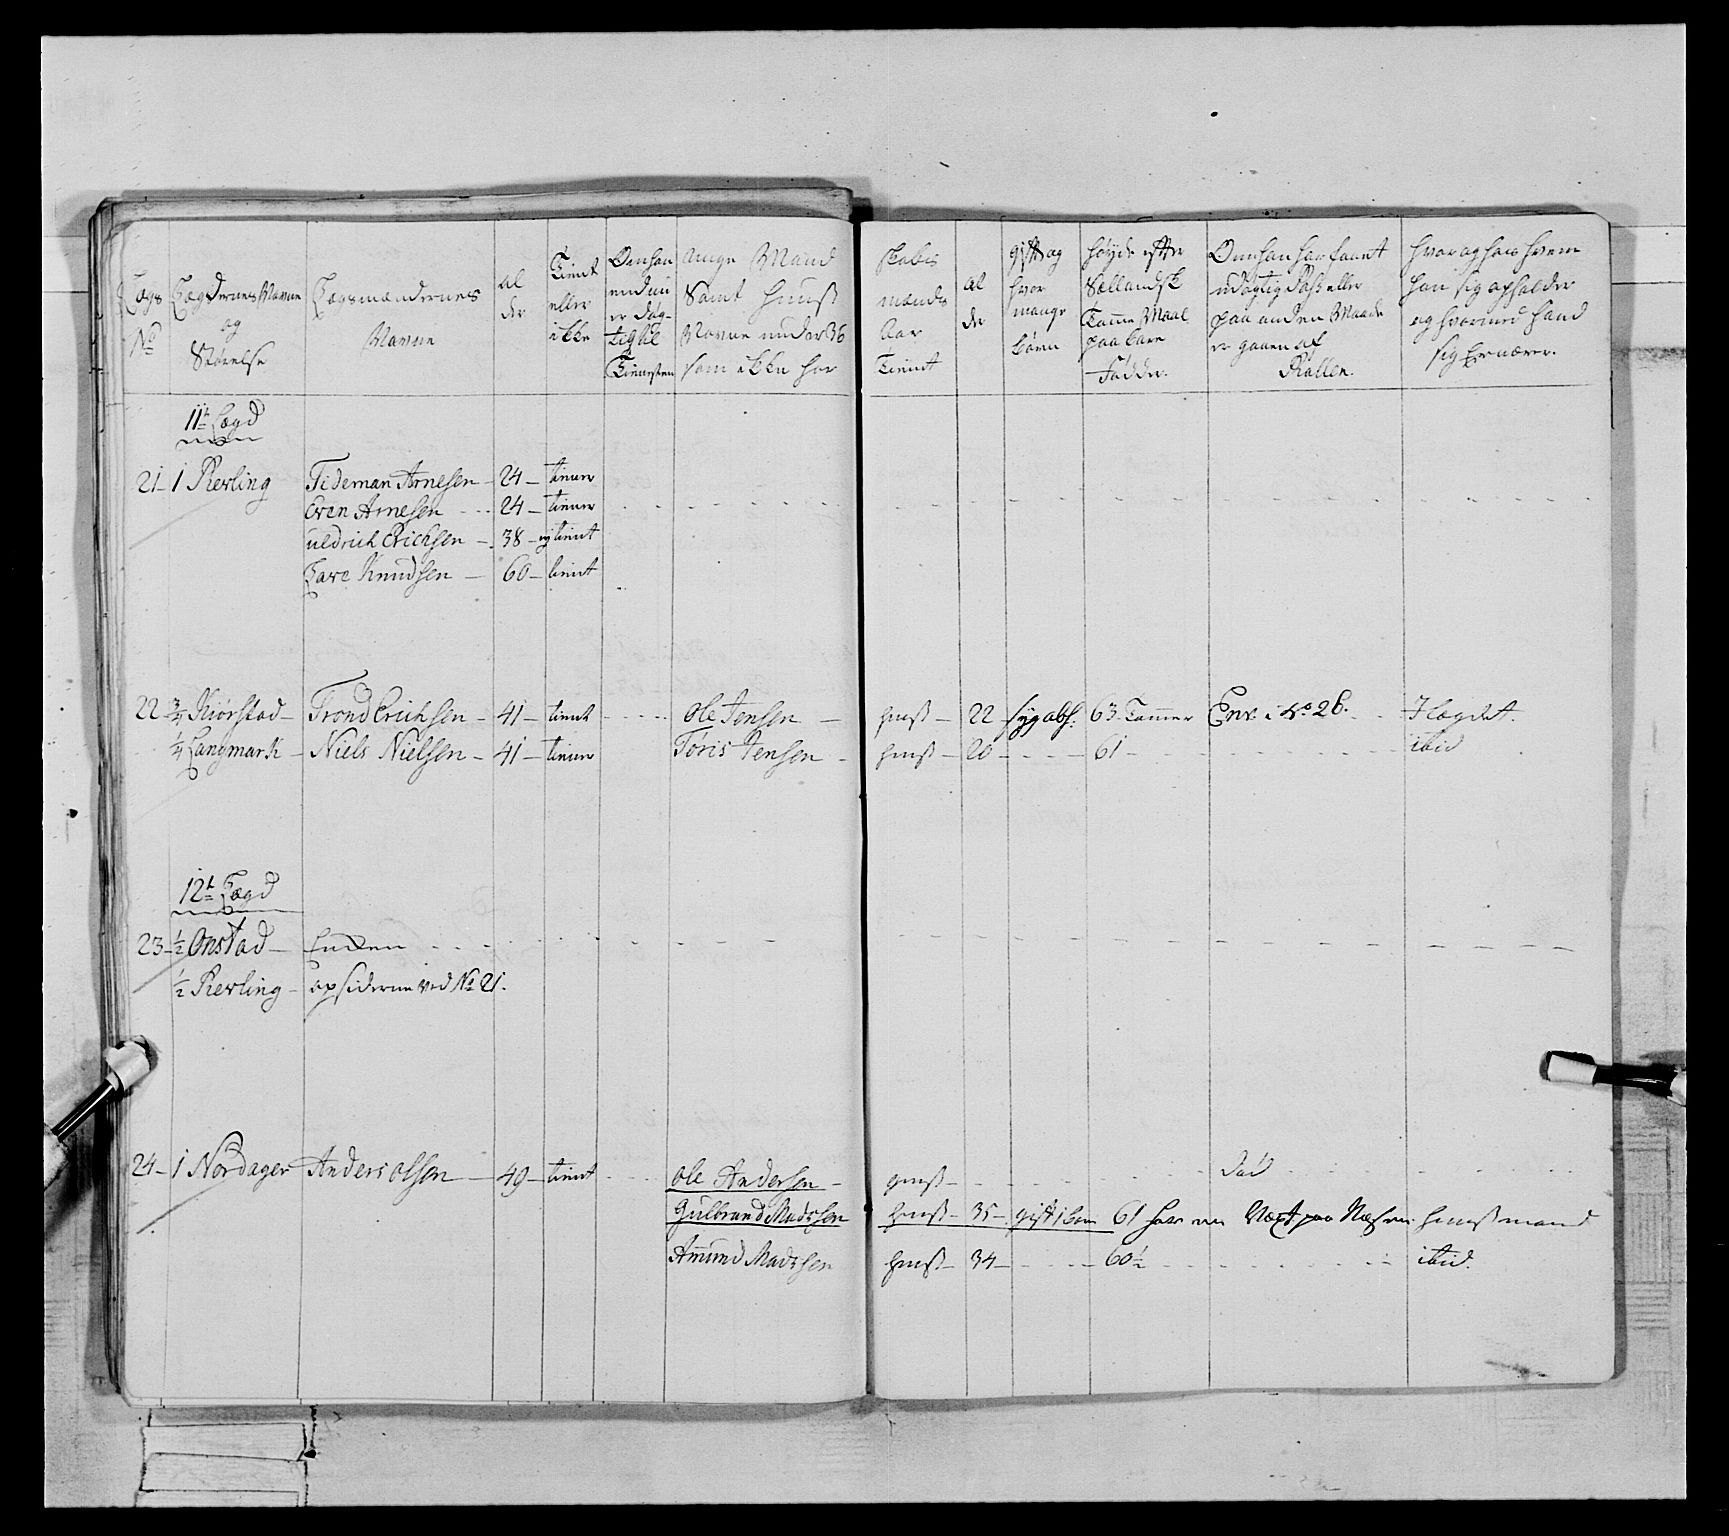 Lægs
No
Lægdernes Navne
og
Størrelse
Lægsmændernes
Navne
Al
der
Tient
eller
ikke
Om han
endnu
er dög-
tig til
Tienesten
unge Mand
Samt huusß
Navne under 36
som ikke har
skabes
mænds
Aar
Tient
Al
der
gift og
hvor
mange
börn
höyde efter
Sællandsk
Tomme Maal
paa bare
Födder.
Om han har faaet
udögtig Pass eller
paa anden Maade
er gaaen af
Rollen.
hvor og hos hvem
han sig opholder
og hvormed hand
sig Ernærer.
11te Lægd
21 - 1 Rerling Tideman Arnesen - 24 - tiener
Even Arnesen - 24 - tiener
uldrich Erichsen - 38 - ej tient
Tare Knudsen - 60 - tient
22 - 3/4 Kiörstad - Trond Erichsen - 41 - tient - Ole Jensen - huusß - 22 syg abs. 63 Tommer Enr. i No 26. I Lægdet.
1/4 Langmark - Niels Nielsen - 41 - tiener Töris Jensen - huusß - 20 - 61 - ibid
12te Lægd
23 - 1/2 Onstad - Enken
1/2 Rerling - opsiderne ved No 21.
24 - 1 Nordager Anders Olssen - 49 - tient Ole Andersen - huusß - död
Gulbrand Madssen huusß - 35 - gift 1 barn 61 har en Vært paa Næs en huusßmand
Amund Madssen huusß - 34 - 60 1/2 ibid.